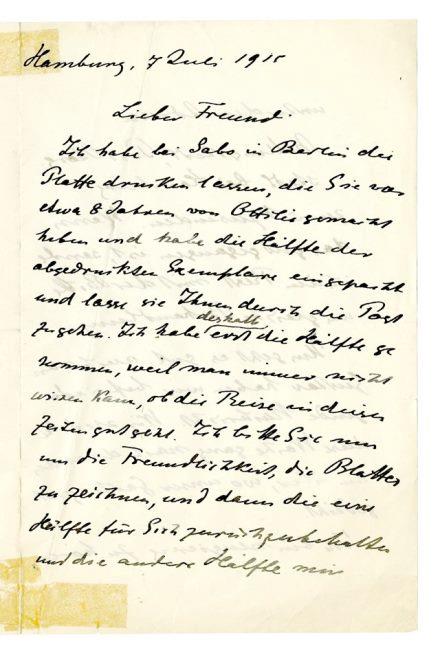 Hamburg, 7 Juli 1915
Lieber Freund.
Ich habe bei Sabo in Berlin die
Platte drucken lassen, die Sie vor
etwa 8 Jahren von Ottilie gemacht
haben und habe die Hälfte der
abgedruckten Exemplare eingepackt
und lasse sie Ihnen durch die Post
deshalb
zugehen. Ich habe erst die Hälfte ge
nommen, weil man immer nicht
wissen kann, ob die Reise in diesen
Zeiten gut geht. Ich bitte Sie nun
um die Freundlichkeit, die Blätter
zu zeichnen, und dann die eine
Hälfte für Sich zurückzubehalten
und die andere Hälfte mir